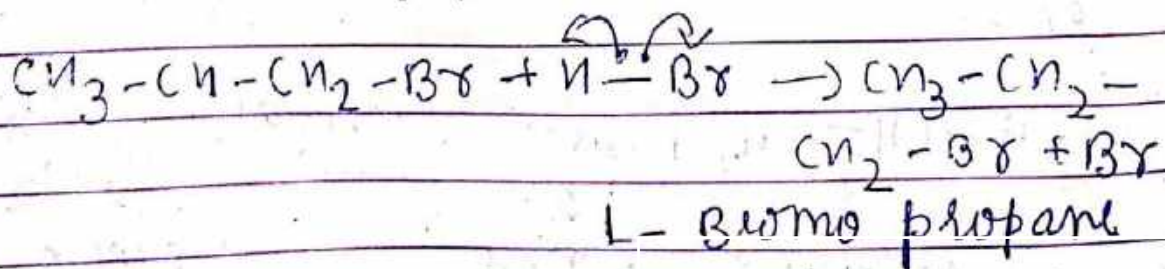 CH₃-CH-CH₂-Br + H-Br → CH₃-CH₂-
CH₂-Br + Br
1- Bromo propane